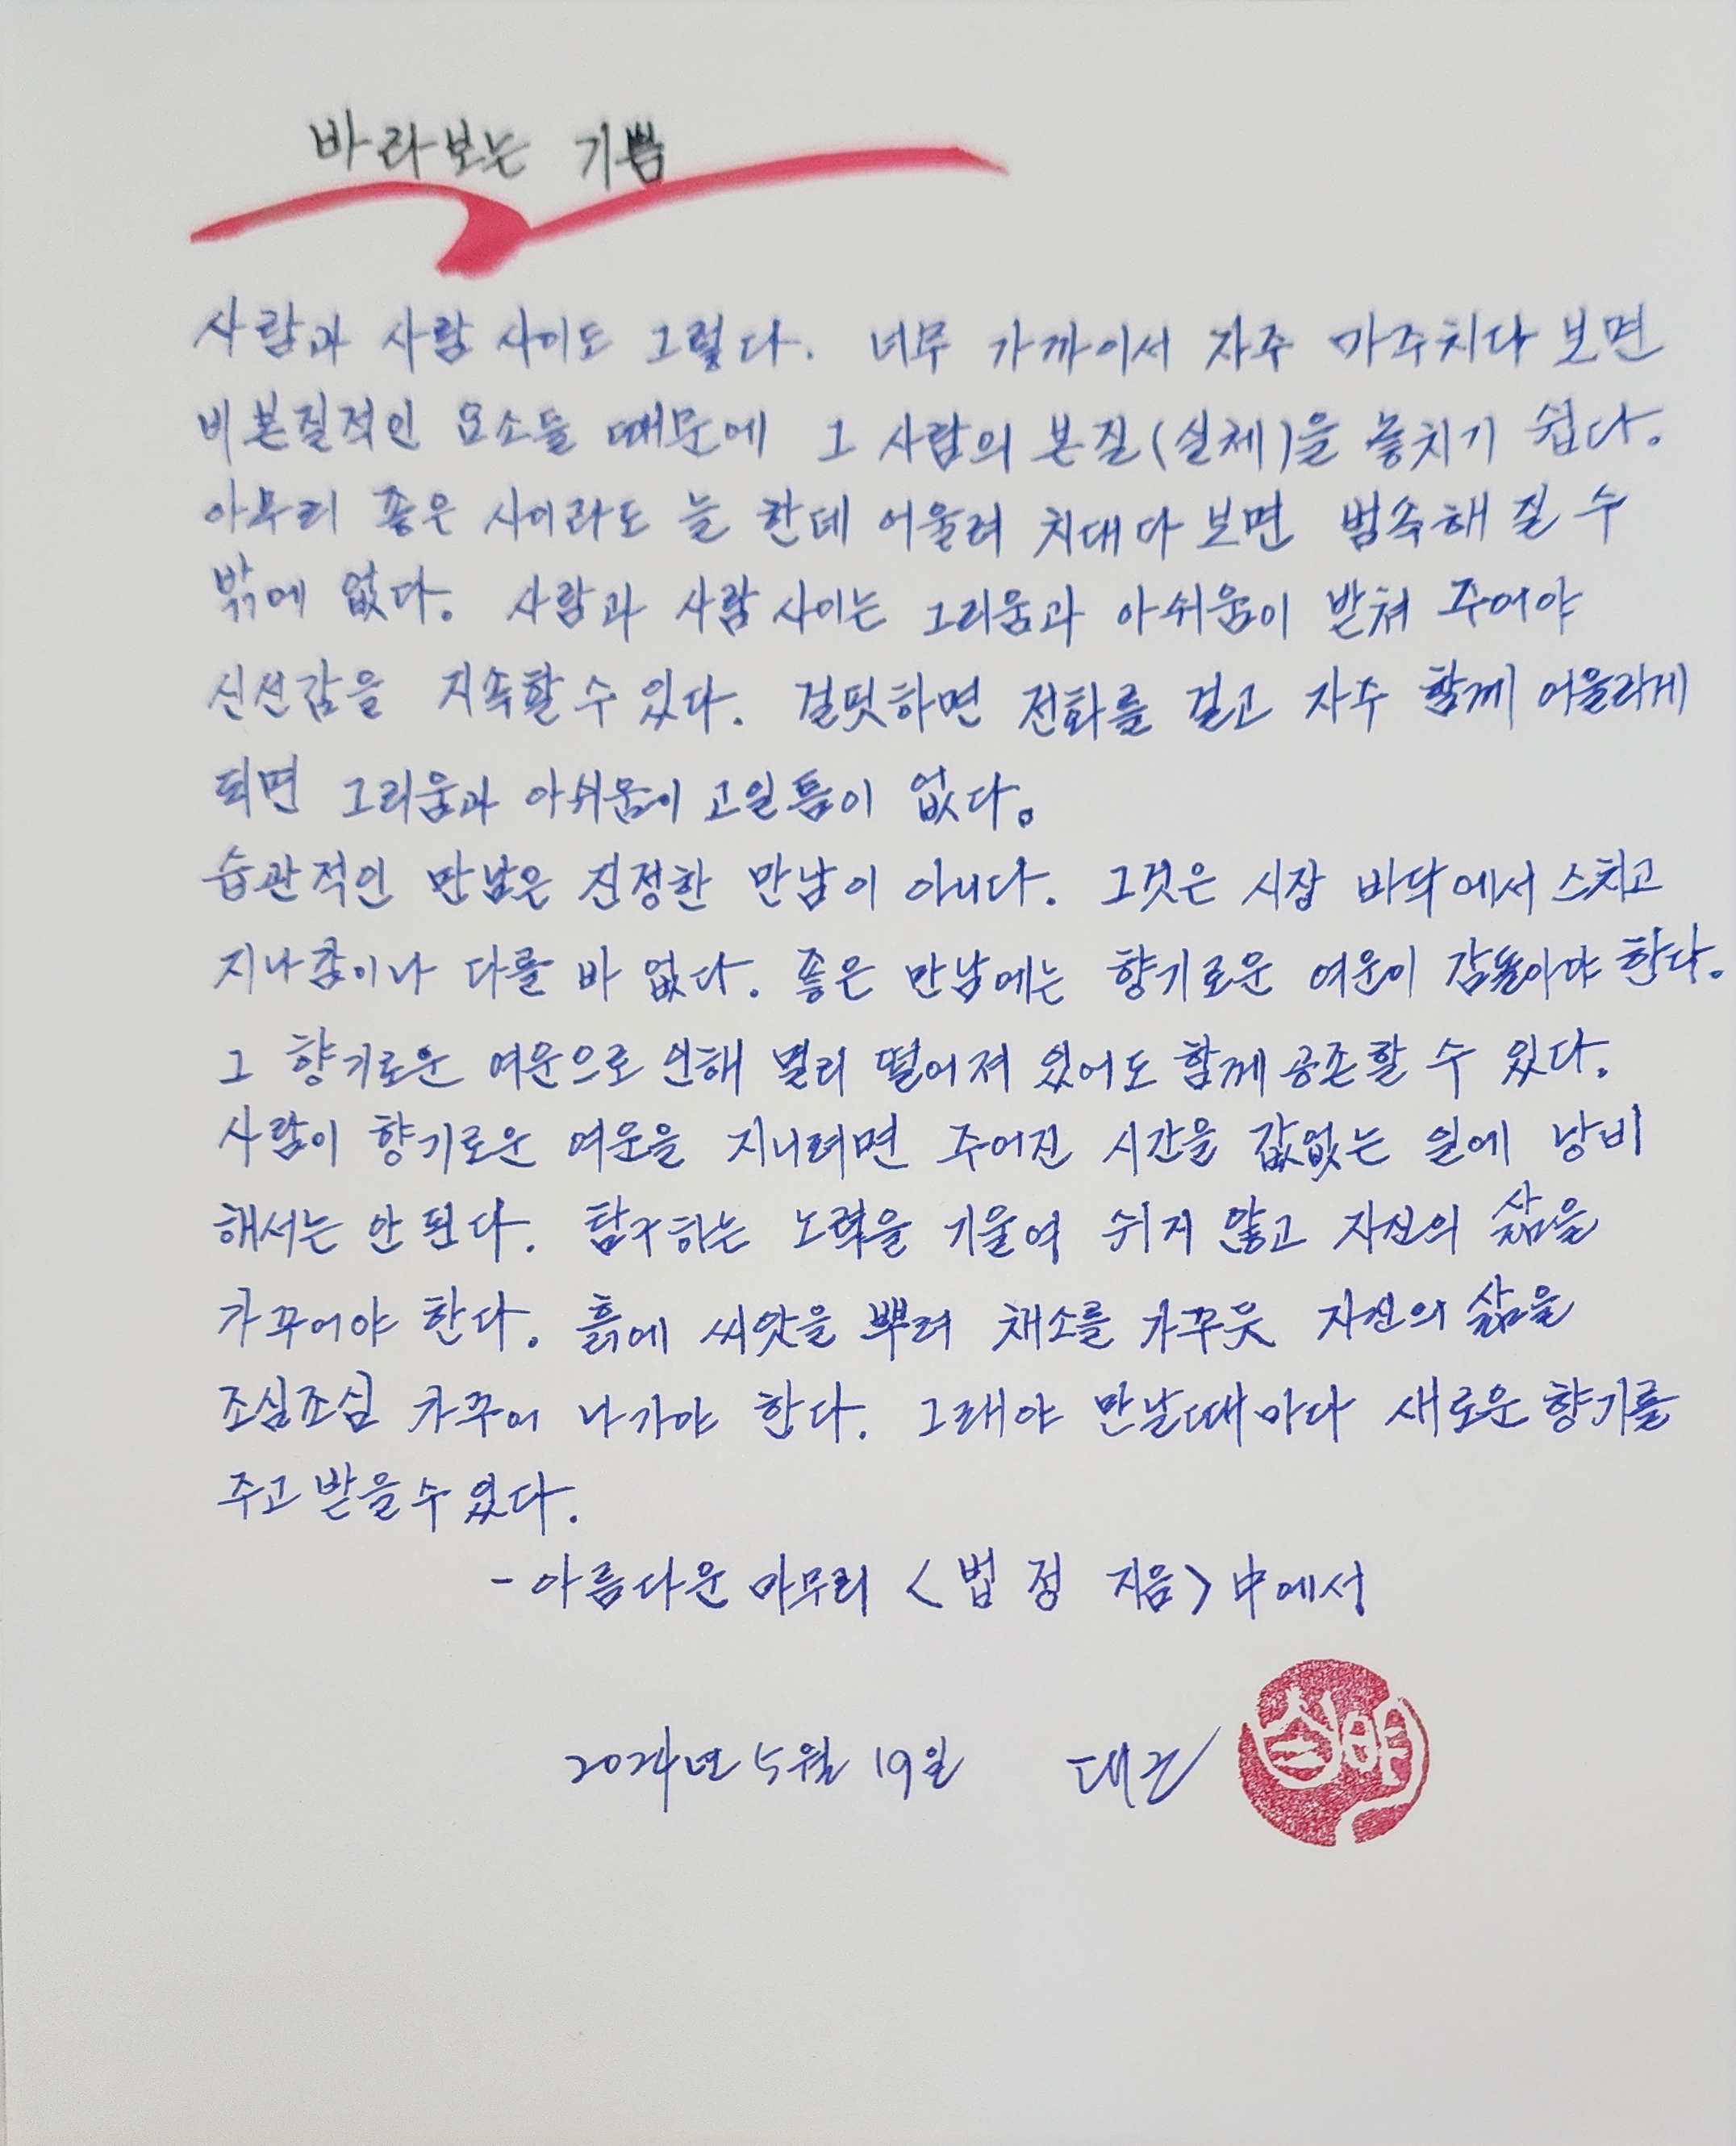 바라보는 기쁨
사람과 사람 사이도 그렇다. 너무 가까이서 자주 마주치다 보면
비본질적인 요소들 때문에 그 사람의 본질(실체)을 놓치기 쉽다.
아무리 좋은 사이라도 늘 한데 어울려 치대다 보면 범속해 질 수
밖에 없다. 사람과 사람 사이는 그리움과 아쉬움이 받쳐 주어야
신선감을 지속할 수 있다. 걸핏하면 전화를 걸고 자주 함께 어울리게
되면 그리움과 아쉬움이 고일 틈이 없다.
습관적인 만남은 진정한 만남이 아니다. 그것은 시장 바닥에서 스치고
지나감이나 다를 바 없다. 좋은 만남에는 향기로운 여운이 감돌아야 한다.
그 향기로운 여운으로 인해 멀리 떨어져 있어도 함께 공존할 수 있다.
사람이 향기로운 여운을 지니려면 주어진 시간을 값없는 일에 낭비
해서는 안 된다. 탐구하는 노력을 기울여 쉬지 않고 자신의 삶을
가꾸어야 한다. 흙에 씨앗을 뿌려 채소를 가꾸듯 자신의 삶을
조심조심 가꾸어 나가야 한다. 그래야 만날때마다 새로운 향기를
주고 받을 수 있다.
- 아름다운 마무리 <법정 지음> 中에서
2024년 5월 19일 대근